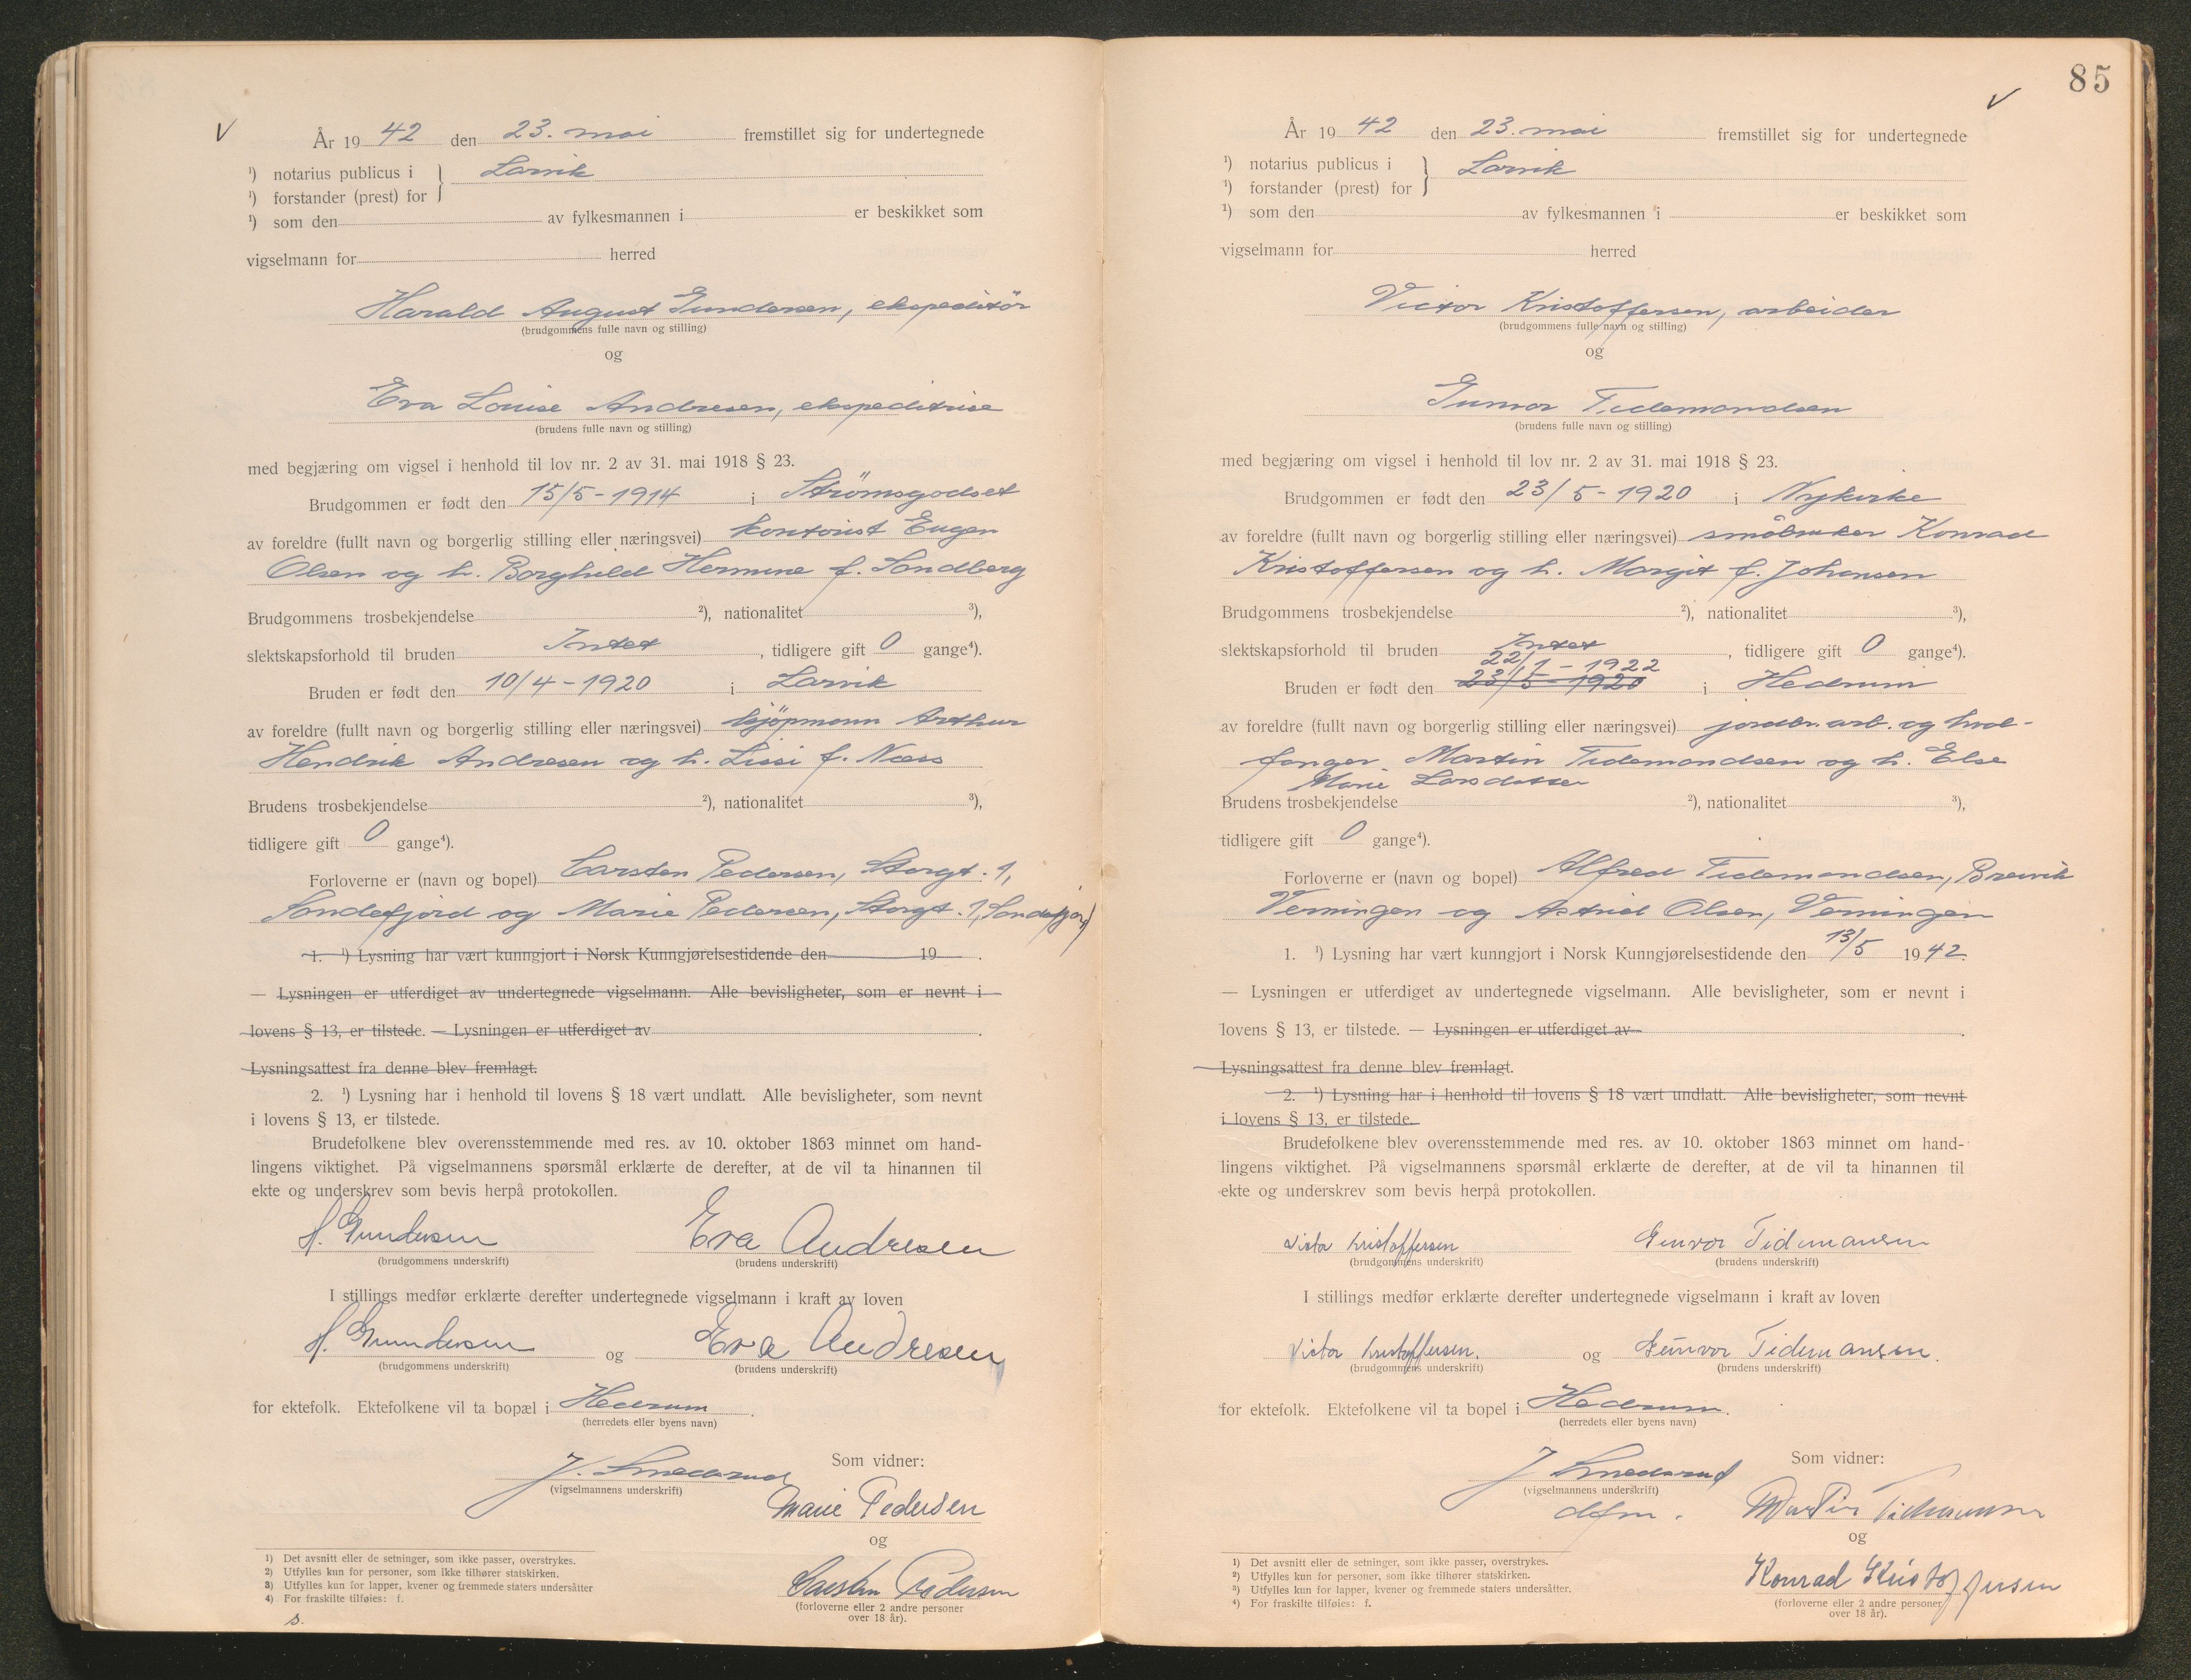 V
År 19 42 den 23. mai fremstillet sig for undertegnede
¹) notarius publicus i } Larvik
¹) forstander (prest) for
¹) som den av fylkesmannen i er beskikket som
vigselmann for herred
Harald August Gundersen, ekspeditör
(brudgommens fulle navn og stilling)
og
Eva Louise Andresen, ekspeditrise
(brudens fulle navn og stilling)
med begjæring om vigsel i henhold til lov nr. 2 av 31. mai 1918 § 23.
Brudgommen er født den 15/5-1914 i Strömsgodset
av foreldre (fullt navn og borgerlig stilling eller næringsvei) kontorist Eugen
Olsen og h. Borghild Hermine f. Sandberg
Brudgommens trosbekjendelse ²), nationalitet ³),
slektskapsforhold til bruden Intet, tidligere gift 0 gange⁴).
Bruden er født den 10/4-1920 i Larvik
av foreldre (fullt navn og borgerlig stilling eller næringsvei) kjöpmann Arthur
Hendrik Andresen og h. Lissi f. Næss
Brudens trosbekjendelse ²), nationalitet ³),
tidligere gift 0 gange⁴).
Forloverne er (navn og bopel) Carsten Pedersen, Storgt. 1,
Sandefjord og Marie Pedersen, Storgt. 1, Sandefjord
1. ¹) Lysning har vært kunngjort i Norsk Kunngjørelsestidende den 19 .
— Lysningen er utferdiget av undertegnede vigselmann. Alle bevisligheter, som er nevnt i
lovens § 13, er tilstede. — Lysningen er utferdiget av .
Lysningsattest fra denne blev fremlagt.
2. ¹) Lysning har i henhold til lovens § 18 vært undlatt. Alle bevisligheter, som nevnt
i lovens § 13, er tilstede.
Brudefolkene blev overensstemmende med res. av 10. oktober 1863 minnet om hand-
lingens viktighet. På vigselmannens spørsmål erklærte de derefter, at de vil ta hinannen til
ekte og underskrev som bevis herpå protokollen.
H. Gundersen Eva Andresen
(brudgommens underskrift) (brudens underskrift)
I stillings medfør erklærte derefter undertegnede vigselmann i kraft av loven
H. Gundersen og Eva Andresen
(brudgommens underskrift) (brudens underskrift)
for ektefolk. Ektefolkene vil ta bopæl i Hedrum.
(herredets eller byens navn)
Som vidner:
J. Smedsrud
(vigselmannens underskrift)
Marie Pedersen
og
Carsten Pedersen
(forloverne eller 2 andre personer
over 18 år).
¹) Det avsnitt eller de setninger, som ikke passer, overstrykes.
²) Utfylles kun for personer, som ikke tilhører statskirken.
³) Utfylles kun for lapper, kvener og fremmede staters undersåtter
⁴) For fraskilte tilføies: f.
s.
85
V
År 19 42 den 23. mai fremstillet sig for undertegnede
¹) notarius publicus i } Larvik
¹) forstander (prest) for
¹) som den av fylkesmannen i er beskikket som
vigselmann for herred
Victor Kristoffersen, arbeider
(brudgommens fulle navn og stilling)
og
Gunvor Tidemandsen
(brudens fulle navn og stilling)
med begjæring om vigsel i henhold til lov nr. 2 av 31. mai 1918 § 23.
Brudgommen er født den 23/5-1920 i Nykirke
av foreldre (fullt navn og borgerlig stilling eller næringsvei) småbruker Konrad
Kristoffersen og h. Margit f. Johansen
Brudgommens trosbekjendelse ²), nationalitet ³),
slektskapsforhold til bruden Intet, tidligere gift 0 gange⁴).
22/1-1922
Bruden er født den 23/5-1920 i Hedrum
av foreldre (fullt navn og borgerlig stilling eller næringsvei) jordbr. arb. og hval-
fanger Martin Tidemandsen og h. Else
Marie Larsdatter
Brudens trosbekjendelse ²), nationalitet ³),
tidligere gift 0 gange⁴).
Forloverne er (navn og bopel) Alfred Tidemandsen, Brevik
Verningen og Astrid Olsen, Verningen
1. ¹) Lysning har vært kunngjort i Norsk Kunngjørelsestidende den 13/5 1942.
— Lysningen er utferdiget av undertegnede vigselmann. Alle bevisligheter, som er nevnt i
lovens § 13, er tilstede. — Lysningen er utferdiget av .
Lysningsattest fra denne blev fremlagt.
2. ¹) Lysning har i henhold til lovens § 18 vært undlatt. Alle bevisligheter, som nevnt
i lovens § 13, er tilstede.
Brudefolkene blev overensstemmende med res. av 10. oktober 1863 minnet om hand-
lingens viktighet. På vigselmannens spørsmål erklærte de derefter, at de vil ta hinannen til
ekte og underskrev som bevis herpå protokollen.
Victor Kristoffersen Gunvor Tidemansen
(brudgommens underskrift) (brudens underskrift)
I stillings medfør erklærte derefter undertegnede vigselmann i kraft av loven
Victor Kristoffersen. og Gunvor Tidemansen.
(brudgommens underskrift) (brudens underskrift)
for ektefolk. Ektefolkene vil ta bopel i Hedrum.
(herredets eller byens navn)
Som vidner:
J Smedsrud
(vigselmannens underskrift)
dfm.
Martin Tidemansen
og
Konrad Kristoffersen
(forloverne eller 2 andre personer
over 18 år).
¹) Det avsnitt eller de setninger, som ikke passer, overstrykes.
²) Utfylles kun for personer, som ikke tilhører statskirken.
³) Utfylles kun for lapper, kvener og fremmede staters undersåtter.
⁴) For fraskilte tilføies: f.